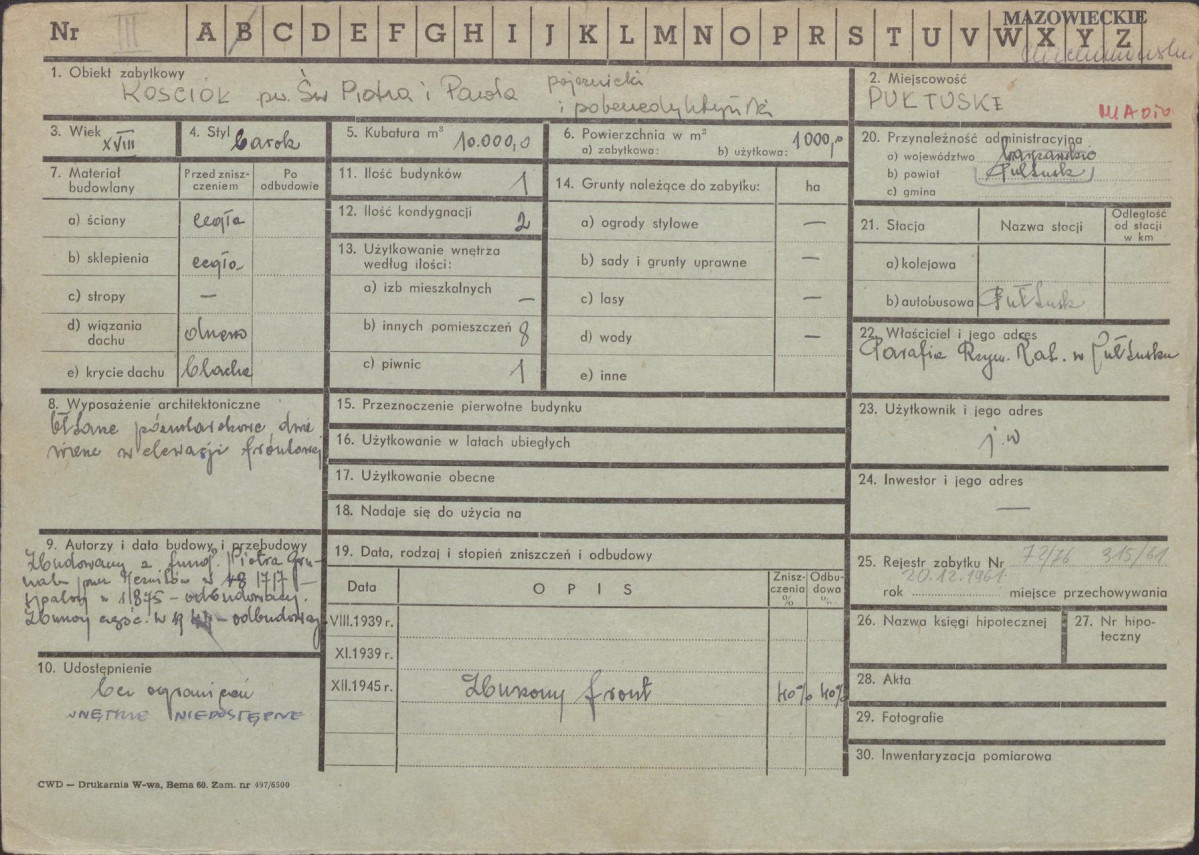 Nr III A B C D E F G H I J K L M N O P R S T U V W X Y Z
MAZOWIECKIE
1. Obiekt zabytkowy
KOŚCIÓŁ pw. Św Piotra i Pawła pojezuicki
i pobenedyktyński
2. Miejscowość
PUŁTUSK
3. Wiek
XVIII
4. Styl barok
5. Kubatura m³
10.000,0
6. Powierzchnia w m²
a) zabytkowa: b) użytkowa: 1000,0
7. Materiał budowlany
Przed zniszczeniem
Po odbudowie
a) ściany cegła
b) sklepienia cegła
c) stropy —
d) wiązania dachu drewno
e) krycie dachu blacha
8. Wyposażenie architektoniczne
w elewacji frontowej
9. Autorzy i data budowy i przebudowy
Zbudowany z fund. Piotra
spalony w 1875 – odbudowany.
– odbudowany
10. Udostępnienie
bez ograniczeń
WNĘTRZE NIEDOSTĘPNE
11. Ilość budynków 1
12. Ilość kondygnacji 2
13. Użytkowanie wnętrza
według ilości:
a) izb mieszkalnych —
b) innych pomieszczeń 8
c) piwnic 1
14. Grunty należące do zabytku: ha
a) ogrody stylowe —
b) sady i grunty uprawne —
c) lasy —
d) wody —
e) inne
15. Przeznaczenie pierwotne budynku
16. Użytkowanie w latach ubiegłych
17. Użytkowanie obecne
18. Nadaje się do użycia na
19. Data, rodzaj i stopień zniszczeń i odbudowy
Data OPIS Zniszczenia % Odbudowa %
VIII.1939 r.
XI.1939 r.
XII.1945 r. Zburzony front 40% 40%
20. Przynależność administracyjna
a) województwo warszawskie
b) powiat Pułtusk
c) gmina
21. Stacja Nazwa stacji Odległość od stacji w km
a) kolejowa
b) autobusowa Pułtusk
22. Właściciel i jego adres
Parafia Rzym. Kat. w Pułtusku
23. Użytkownik i jego adres
j.w
24. Inwestor i jego adres
—
25. Rejestr zabytku Nr 72/76 315/61
20.12.1961
rok miejsce przechowywania
26. Nazwa księgi hipotecznej
27. Nr hipoteczny
28. Akta
29. Fotografie
30. Inwentaryzacja pomiarowa
CWD — Drukarnia W-wa, Bema 60. Zam. nr 497/6500